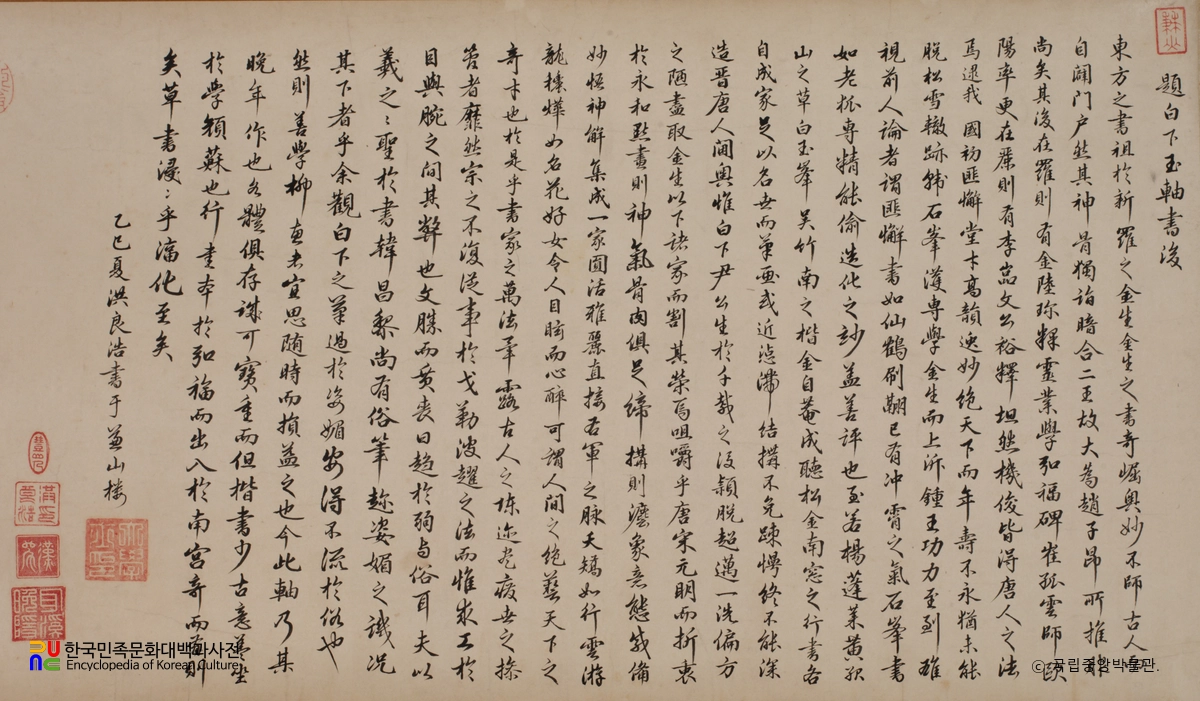 題白下玉軸書後
東方之書祖於新羅之金生金生之書奇崛奧妙不師古人
自闢門户然其神骨獨詣暗合二王故大為趙子昂所推
尚矣其後在羅則有金陸珍釋靈業學弘福碑崔孤雲師歐
陽率更在麗則有李嵒文公裕釋坦然機俊皆得唐人之法
焉逮我 國初匪懈堂才高韻逸妙絶天下而年壽不永猶未能
脫松雪轍跡韓石峯濩專學金生而上泝鍾王功力至到雖
視前人論者謂匪懈書如仙鶴刷翮已有冲霄之氣石峯書
如老狐專精能偷造化之妙盖善評也至若楊蓬萊黄孤
山之草白玉峯吴竹南之楷金自菴成聽松金南窓之行書各
自成家足以名世而筆畫或近泥滯結搆不免疎慢終不能深
造晋唐人閫奧惟白下尹公生於千載之後穎脫超邁一洗偏方
之陋盡取金生以下諸家而割其榮焉咀嚼乎唐宋元明而折衷
於永和點畫則神氣骨肉俱足締搆則濃象意態咸備
妙悟神解集成一家圓活雅麗直接右軍之脉夭矯如行雲游
龍標燁如名花好女令人目眩而心醉可謂人間之絶藝天下之
奇才也於是乎書家之萬法畢露古人之陳迹差廢世之操
觚者靡然宗之不復從事於戈勒波趯之法而惟求工於
目與腕之間其弊也文勝而質喪日趨於弱與俗耳夫以
羲之之聖於書韓昌黎尚有俗筆趂姿媚之譏况
其下者乎余觀白下之筆過於姿媚安得不流於俗也
然則善學柳惠者宜思随時而損益之也今此軸乃其
晩年作也各體俱存諒可寶重而但楷書少古意
於學顏蘇也行書本於弘福而出入於南宮奇而
矣草書浸浸乎濇化至矣
乙巳夏洪良浩書于兼山樓
한국민족문화대백과사전
Encyclopedia of Korean Culture
© 국립중앙박물관.